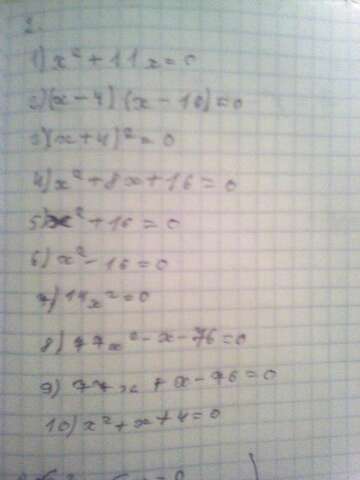 2.
1) x² + 11x = 0
2) (x - 4)(x - 10) = 0
3) (x + 4)² = 0
4) x² + 8x + 16 = 0
5) x² + 16 = 0
6) x² - 16 = 0
7) 14x² = 0
8) 77x² - x - 76 = 0
9) 77x + x - 76 = 0
10) x² + x + 4 = 0